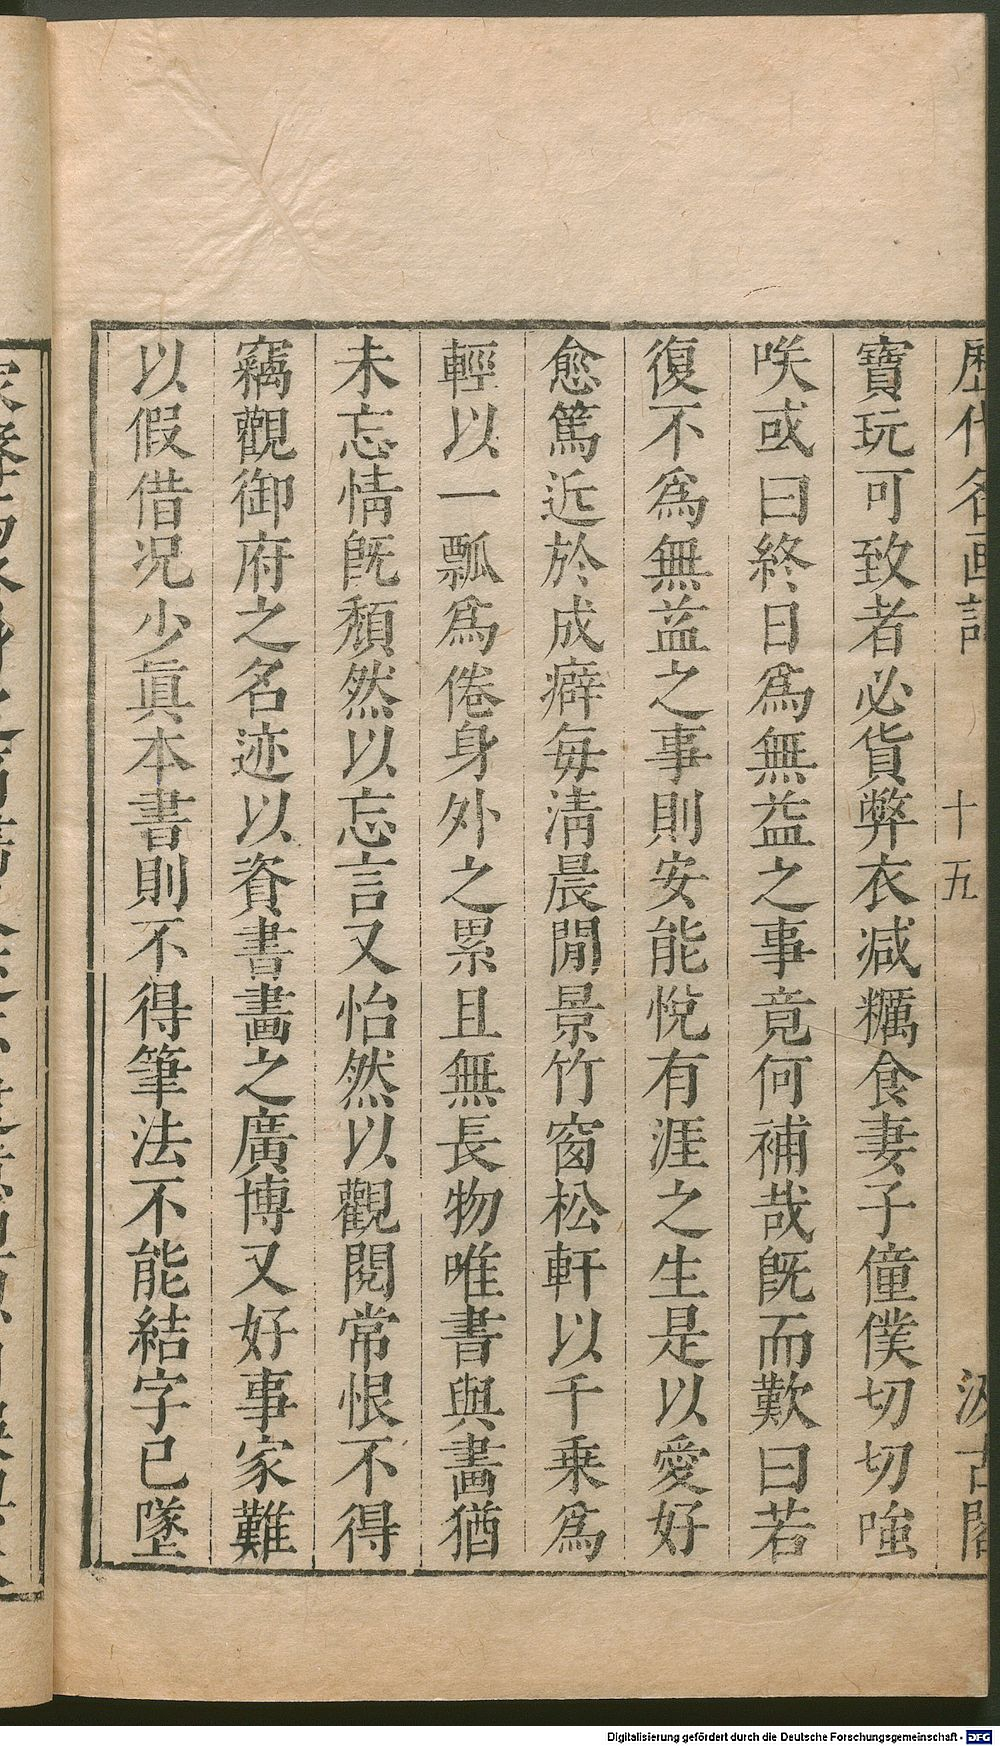 歷代名画記 十五 汲古閣
寶玩可致者必貨弊衣减糲食妻子僮僕切切嗤
咲或曰終日爲無益之事竟何補哉旣而歎曰若
復不爲無益之事則安能悅有涯之生是以愛好
愈篤近於成癖每淸晨閒景竹窗松軒以千乗爲
輕以一瓢爲倦身外之累且無長物唯書與畵猶
未忘情旣頹然以忘言又怡然以觀閱常恨不得
竊觀御府之名迹以資書畵之廣博又好事家難
以假借况少眞本書則不得筆法不能結字已墜
Digitalisierung gefördert durch die Deutsche Forschungsgemeinschaft - DFG